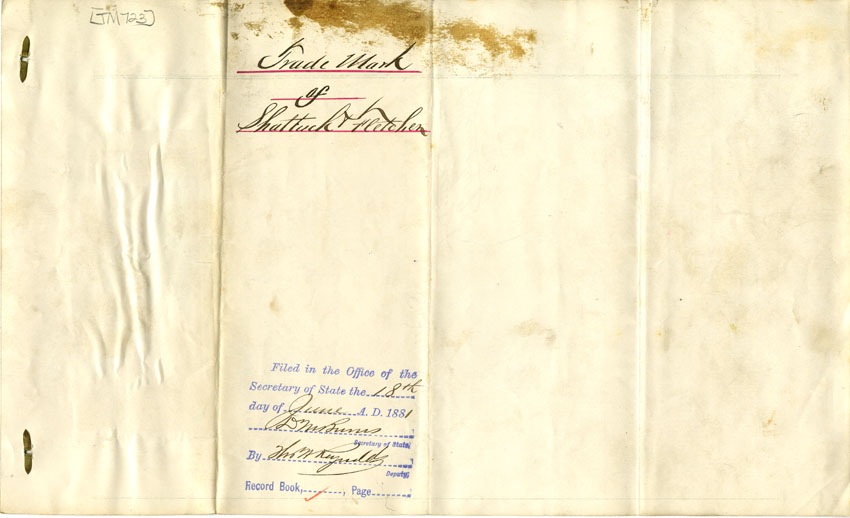 [TM 723]
Trade Mark
of
Shattuck & Fletcher
Filed in the Office of the
Secretary of State the 18th
day of June A. D. 1881
D M Burns
Secretary of State,
By Thos H Reynolds
Deputy,
Record Book, ✓, Page